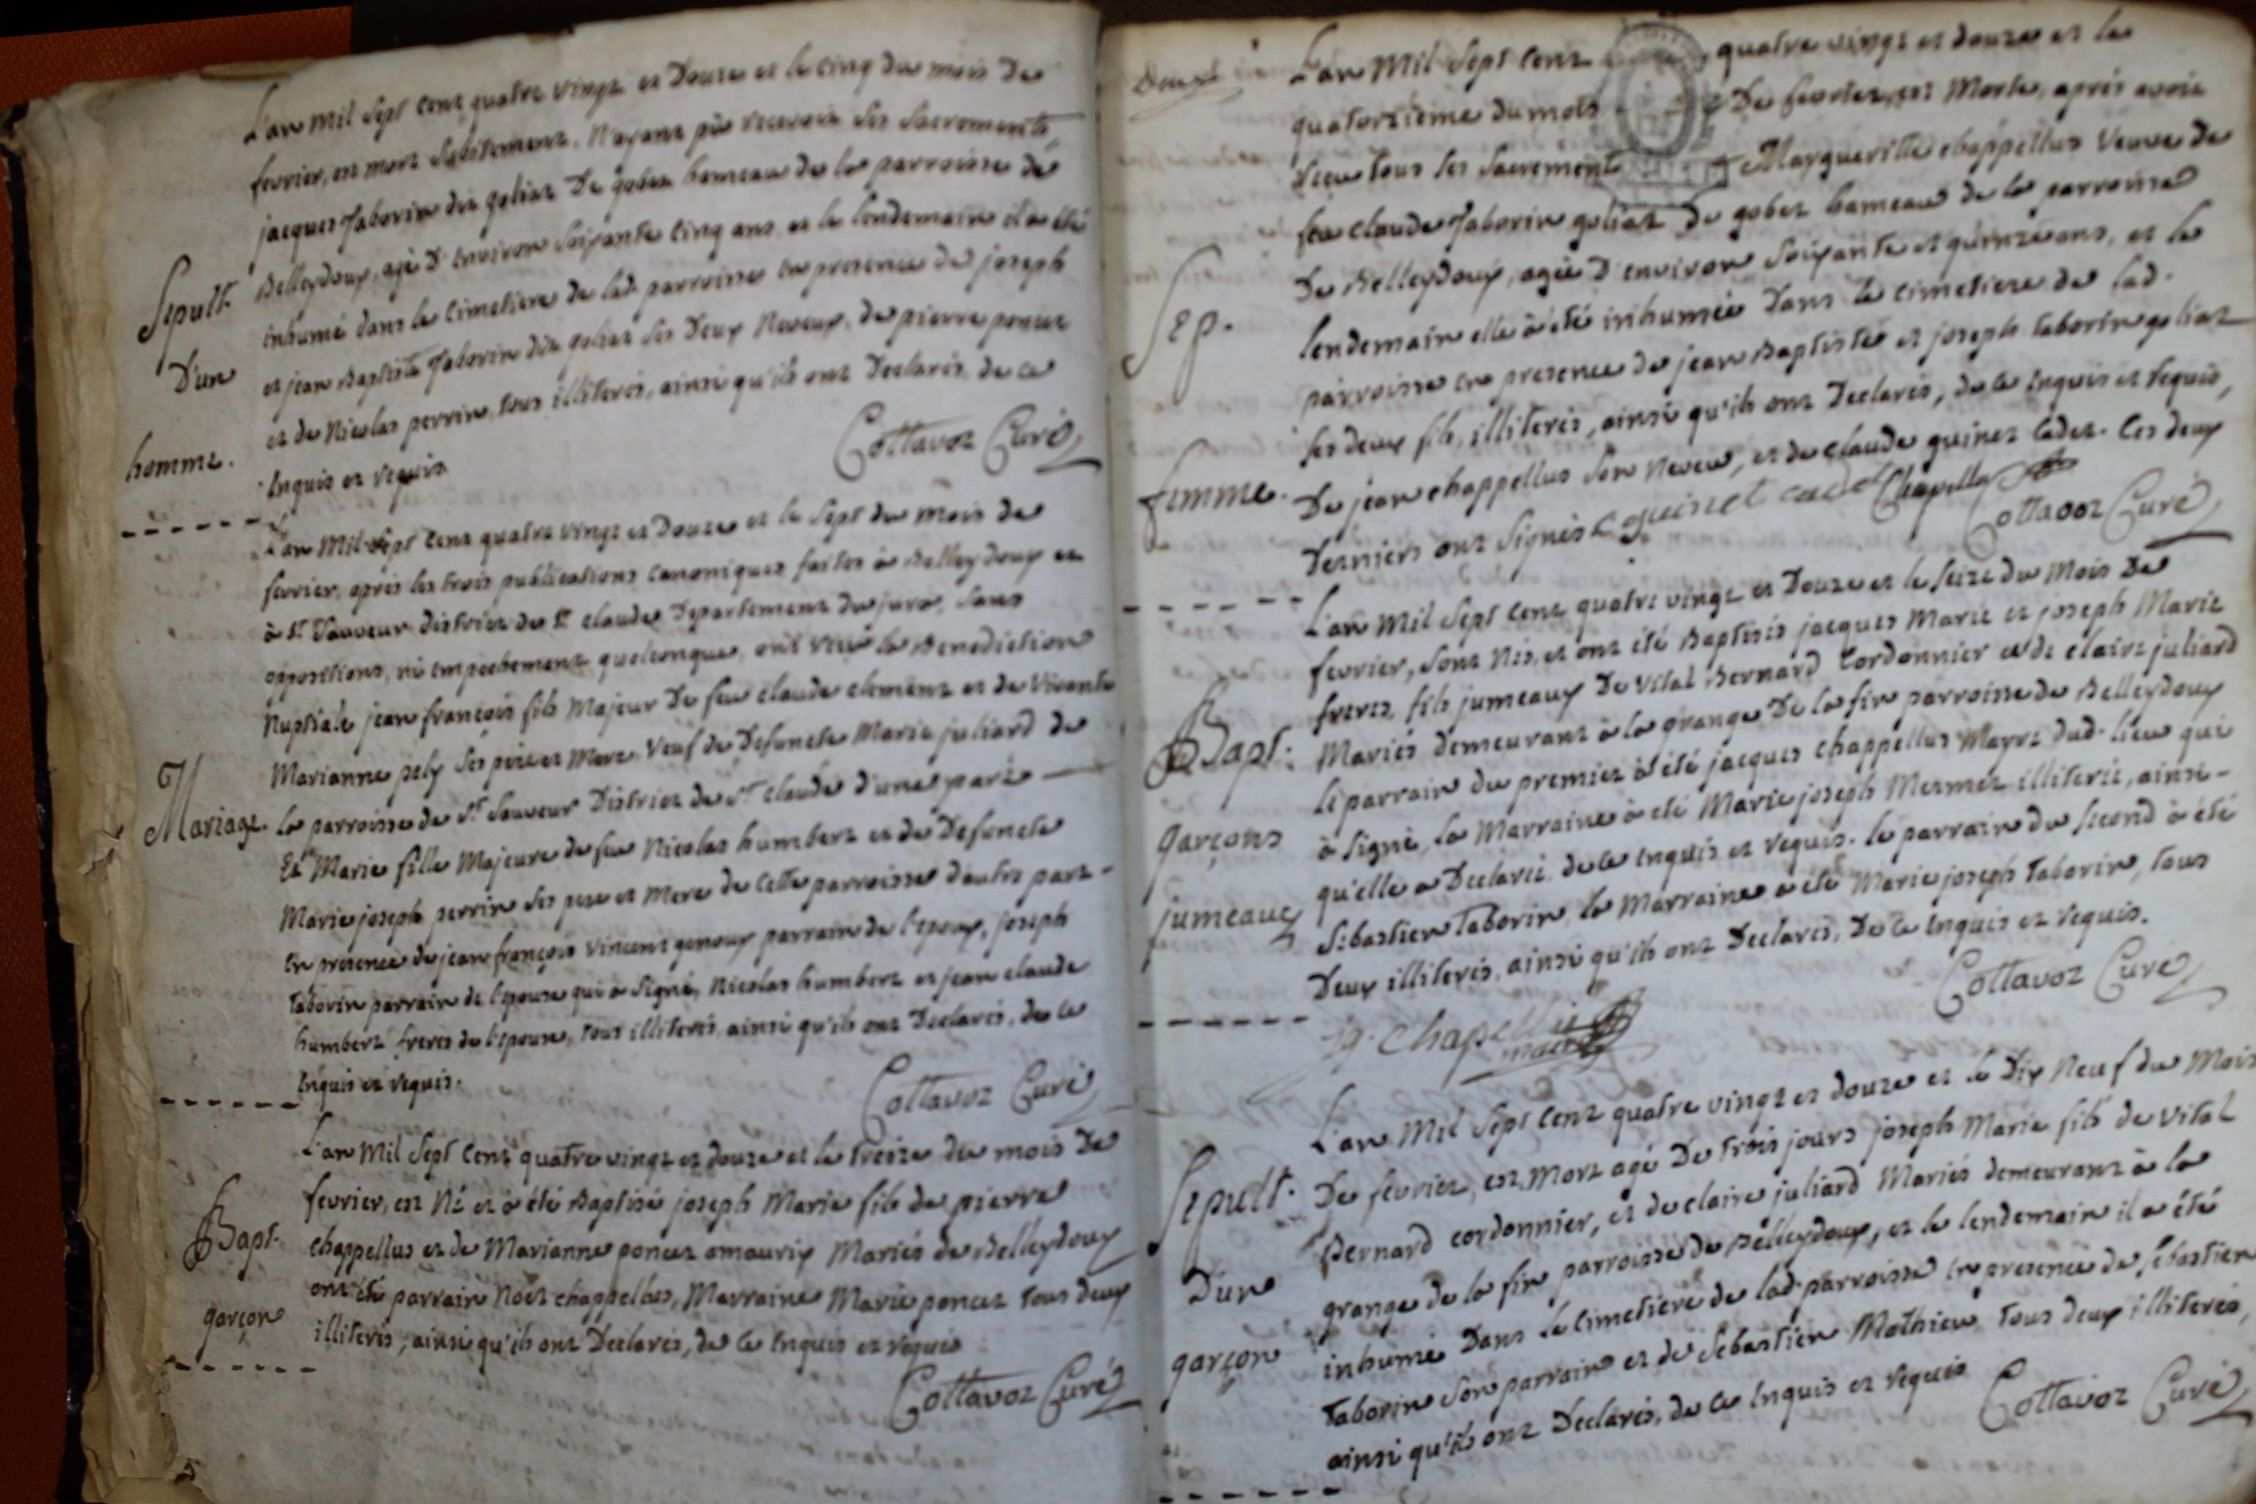 L'an Mil Sept Cent quatre vingt et Douze et le Cinq du mois de
fevrier, est mort subitement, N'ayant pû recevoir ses sacrements
jacques Taborin dit goliat De gobet hameau de la parroisse de
Belleydoux, agé D'environ soixante Cinq ans et le lendemain il a été
Sepult.
inhumé dans le Cimetiere de lad. parroisse en presence de joseph
et jean Baptiste Taborin dit goliat ses Deux Neveux, de pierre poncet
D'un
et de Nicolas perrin, tous illiterés, ainsi qu'ils ont Declarés, de ce
homme.
Enquis et requis
Cottavoz Curé
L'an Mil Sept Cent quatre vingt et Douze et le Sept du mois de
fevrier, après les trois publications Canoniques faites à Belleydoux et
à St. Sauveur district de St. Claude Departement du jura, sans
oppositions, ni empechement quelconque, ont reçu la Benediction
Nuptiale jean françois fils Majeur De feu claude clement et de Vivante
Marianne pely ses pere et Mere Veuf de Defuncte Marie juliard de
Mariage.
la parroisse de St. Sauveur District de St. Claude d'une part
Et Marie fille Majeure de feu Nicolas humbert et de Defuncte
Marie joseph perrin ses pere et Mere de Cette parroisse d'autre part
en presence de jean françois Vincent genoux parrain de l'epoux, joseph
Taborin parrain de l'epouse qui a signé, Nicolas humbert et jean claude
humbert freres de l'epouse, tous illiterés, ainsi qu'ils ont Declarés, de ce
Enquis et requis.
Cottavoz Curé
L'an Mil Sept Cent quatre vingt et douze et le treize du mois De
fevrier, est Né et a été Baptisé joseph Marie fils de pierre
Bapt.
chappellus et de Marianne poncet amaurix Mariés de Belleydoux
ont été parrain Noël chappellus, Marraine Marie poncet tous deux
garçon
illiterés, ainsi qu'ils ont Declarés, de ce Enquis et requis
Cottavoz Curé
L'an Mil Sept Cent quatre vingt et douze et le
quatorzieme du mois De fevrier, est Morte, après avoir
reçu tous les sacrements Marguerittte chappellus Veuve de
feu Claude Taborin goliat De gobet hameau de la parroisse
De Belleydoux, agée D'environ soixante et quinze ans, et le
Sep.
lendemain elle a été inhumée Dans le Cimetiere de lad.
parroisse en presence de jean Baptiste et joseph taborin goliat
ses deux fils, illiterés, ainsi qu'ils ont Declarés, de ce Enquis et requis,
femme.
De jean chappellus son Neveu, et de Claude guinet Cadet. Ces deux
Derniers ont signés C guinet cadet Chapellu
Cottavoz Curé
L'an Mil Sept Cent quatre vingt et Douze et le seize du Mois De
fevrier, sont Nés, et ont été Baptisés jacques Marie et joseph Marie
freres, fils jumeaux De Vital Bernard Cordonnier et de claire juliard
Bapt.
Mariés demeurant à la grange De la fin parroisse de Belleydoux
le parrain du premier a été jacques chappellus Mayre dud. lieu qui
garçons
a signé, la Marraine a été Marie joseph Mermet illiterée, ainsi
qu'elle a Declaréé de ce Enquis et requis. le parrain du second a été
jumeaux
Sebastien Taborin, la Marraine a été Marie joseph Taborin, tous
Deux illiterés, ainsi qu'ils ont Declarés, De ce Enquis et requis.
Cottavoz Curé
Chapellu maire
L'an Mil Sept Cent quatre vingt et douze et le Dix Neuf du Mois
Sepult.
De fevrier, est Mort agé De trois jours joseph Marie fils de Vital
Bernard cordonnier, et de claire juliard Mariés demeurant à la
grange de la fin parroisse de Belleydoux, et le lendemain il a été
D'un
inhumé Dans le Cimetiere de lad. parroisse en presence de Sebastien
garçon
Taborin son parrain et de Sebastien Mathieu tous deux illiterés,
ainsi qu'ils ont Declarés, de ce Enquis et requis
Cottavoz Curé